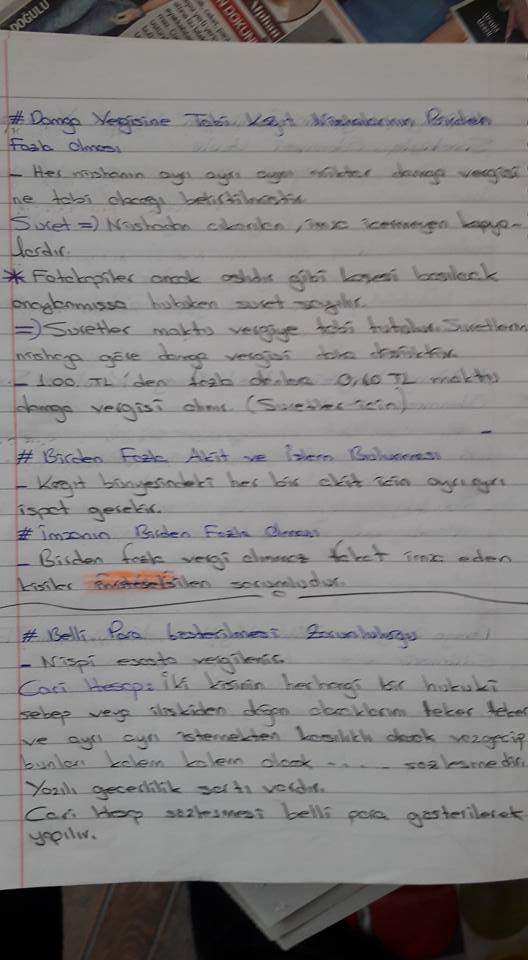 DOĞULU
DOKUN
# Damga Vergisine Tabi Kağıt Nüshalarının Birden
Fazla Olması
- Her nüshanın ayrı ayrı aynı miktar damga vergisi
ne tabi olacağı belirtilmiştir.
Suret => Nüshadan çıkarılan, imza içermeyen kopya-
lardır.
* Fotokopiler ancak aslıdır gibi kaşesi basılarak
onaylanmışsa hukuken suret sayılır.
=> Suretler maktu vergiye tabi tutulur. Suretlerin
nüshaya göre damga vergisi daha düşüktür.
- 1.00 TL'den fazla olanlar 0,60 TL maktu
damga vergisi alınır. (Suretler için)
# Birden Fazla Akit ve İşlem Bulunması
- Kağıt bünyesindeki her bir akit için ayrı ayrı
ispat gerekir.
# İmzanın Birden Fazla Olması
- Birden fazla vergi alınmaz fakat imza eden
kişiler müteselsilen sorumludur.
# Belli Para Gösterilmesi Zorunluluğu
- Nispi esasta vergilerde
Cari Hesap: İki kişinin herhangi bir hukuki
sebep veya ilişkiden doğan alacaklarını teker teker
ve ayrı ayrı istemekten karşılıklı olarak vazgeçip
bunları kalem kalem olarak ..... sözleşmedir.
Yazılı geçerlilik şartı vardır.
Cari Hesap sözleşmesi belli para gösterilerek
yapılır.